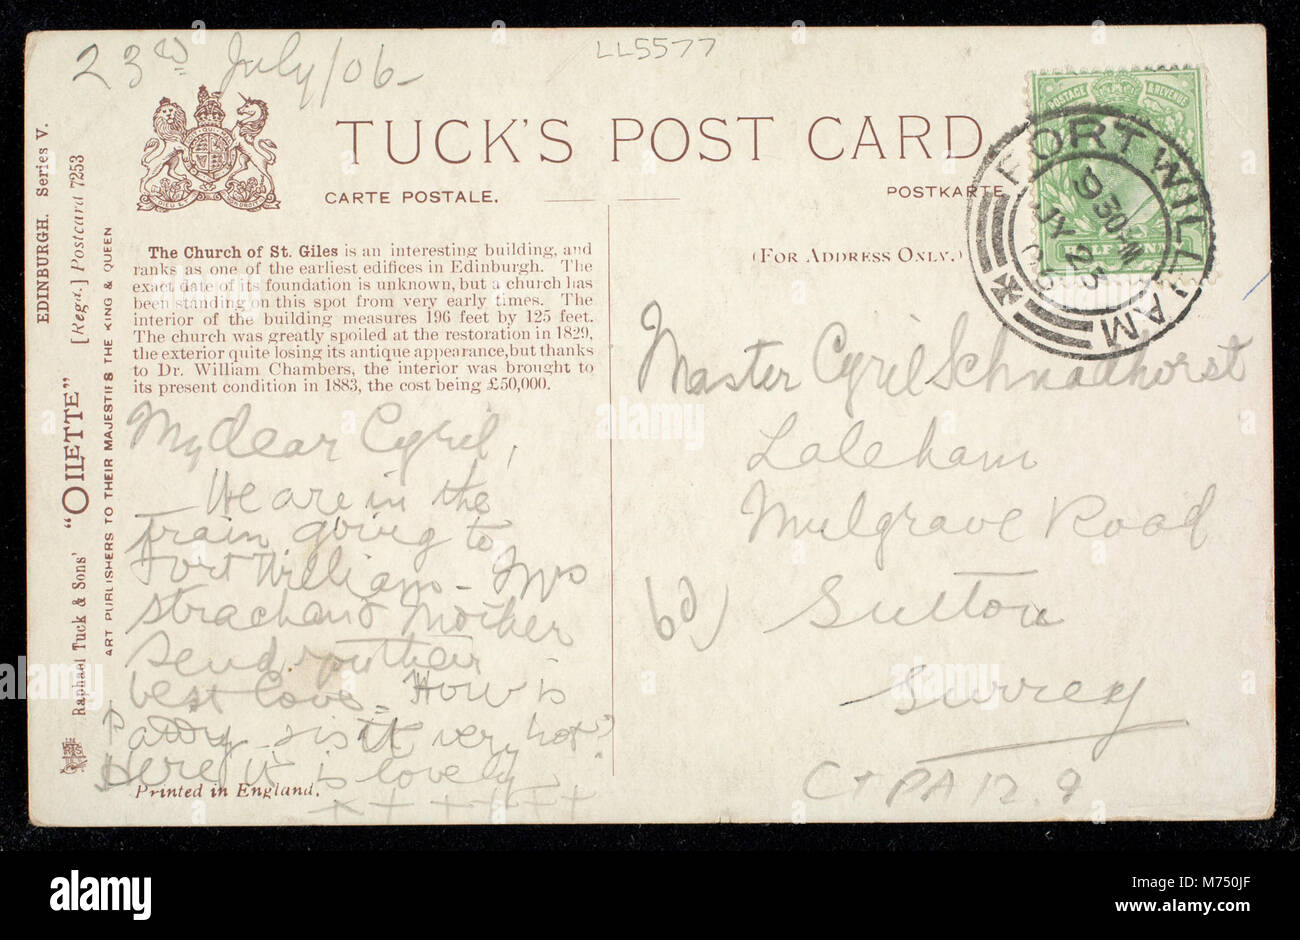 23rd July/06-
LL5577
TUCK'S POST CARD
CARTE POSTALE.
POSTKARTE
(FOR ADDRESS ONLY.)
FORT WILLIAM
9 30
JY 25
06
POSTAGE & REVENUE
HALF PENNY
EDINBURGH. Series V.
[Regd.] Postcard 7253
Raphael Tuck & Sons' "OILETTE"
ART PUBLISHERS TO THEIR MAJESTIES THE KING & QUEEN
The Church of St. Giles is an interesting building, and
ranks as one of the earliest edifices in Edinburgh. The
exact date of its foundation is unknown, but a church has
been standing on this spot from very early times. The
interior of the building measures 196 feet by 125 feet.
The church was greatly spoiled at the restoration in 1829,
the exterior quite losing its antique appearance, but thanks
to Dr. William Chambers, the interior was brought to
its present condition in 1883, the cost being £50,000.
My dear Cyril,
We are in the
train going to
Fort William - Mrs
Strachan & Mother
send you their
best love. How is
Paddy - is it very hot?
Here it is lovely
x + + + + + +
Printed in England.
Master Cyril Schnadhorst
Laleham
Mulgrave Road
Sutton
Surrey
6d)
C+PA 12.9
alamy
Image ID: M750JF
www.alamy.com